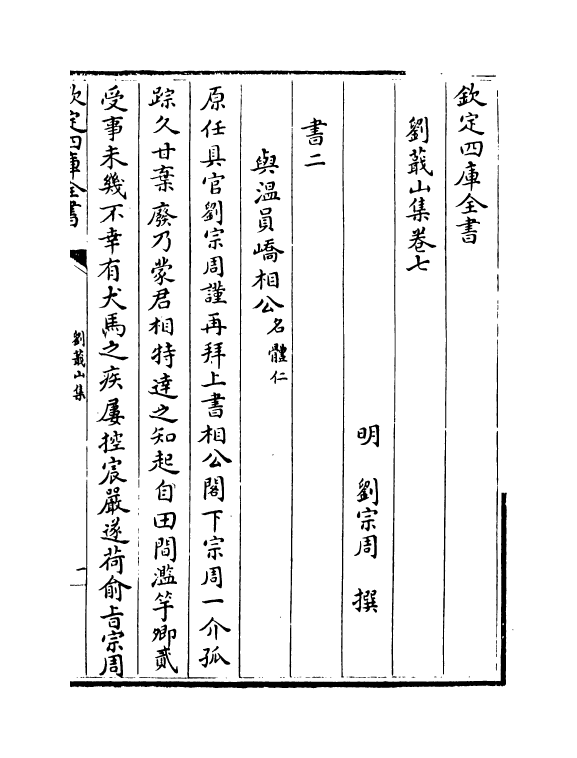 欽定四庫全書
劉蕺山集卷七
明 劉宗周 撰
書二
與溫員嶠相公名體仁
原任具官劉宗周謹再拜上書相公閣下宗周一介孤
踪久甘棄廢乃蒙君相特達之知起自田間濫竽卿貳
受事未幾不幸有犬馬之疾屢控宸嚴遂荷俞旨宗周
欽定四庫全書
劉蕺山集
一